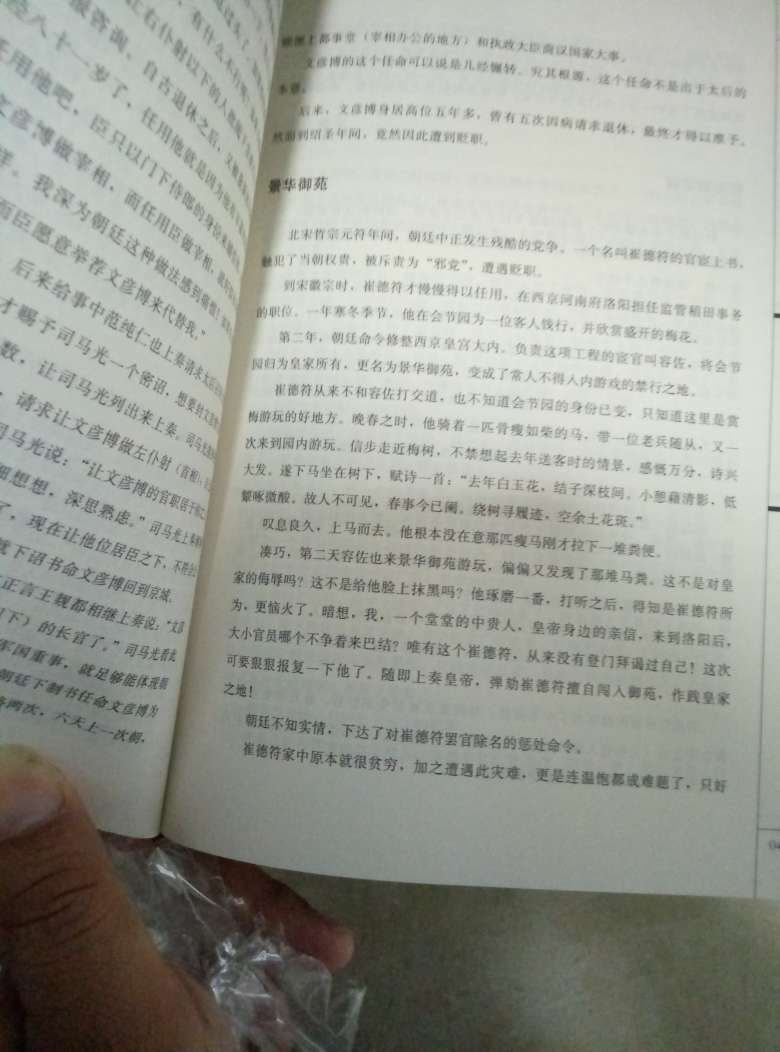 什么不行呢
让右仆射以下的人
报咨询。自古退休之后，又
是八十一岁了，任用他就是因为他
任用他吧，臣只以门下侍郎的身份来
文彦博做宰相，而任用臣做宰相，
样。我深为朝廷这种做法感到
而臣愿意举荐文彦博来代替我。”
后来给事中范纯仁也上奏请求太后
才赐予司马光一个密诏，想要封文彦博
数，让司马光列出来上奏。司马光
，请求让文彦博做左仆射（首相）
司马光说：“让文彦博的官职居于
细想想，深思熟虑。”司马光上奏
了，现在让他位居臣之下，不符合
就下诏书命文彦博回到京城。
正言王觌都相继上奏说：“文彦
门下）的长官了。”司马光看此
军国重事，就足够能体现朝
朝廷下制书任命文彦博为
两次，六天上一次朝，
上都事堂（宰相办公的地方）和执政大臣商议国家大事。
文彦博的这个任命可以说是几经辗转。究其根源，这个任命不是出于太后的
本意。
后来，文彦博身居高位五年多，曾有五次因病请求退休，最终才得以准予。
然而到绍圣年间，竟然因此遭到贬职。
景华御苑
北宋哲宗元符年间，朝廷中正发生残酷的党争。一个名叫崔德符的官宦上书，
触犯了当朝权贵，被斥责为“邪党”，遭遇贬职。
到宋徽宗时，崔德符才慢慢得以任用，在西京河南府洛阳担任监管稻田事务
的职位。一年寒冬季节，他在会节园为一位客人饯行，并欣赏盛开的梅花。
第二年，朝廷命令修整西京皇宫大内。负责这项工程的宦官叫容佐，将会节
园归为皇家所有，更名为景华御苑，变成了常人不得入内游戏的禁行之地。
崔德符从来不和容佐打交道，也不知道会节园的身份已变，只知道这里是赏
梅游玩的好地方。晚春之时，他骑着一匹骨瘦如柴的马，带一位老兵随从，又一
次来到园内游玩。信步走近梅树，不禁想起去年送客时的情景，感慨万分，诗兴
大发。遂下马坐在树下，赋诗一首：“去年白玉花，结子深枝间。小憩藉清影，低
颦啄微酸。故人不可见，春事今已阑。绕树寻履迹，空余土花斑。”
叹息良久，上马而去。他根本没在意那匹瘦马刚才拉下一堆粪便。
凑巧，第二天容佐也来景华御苑游玩，偏偏又发现了那堆马粪。这不是对皇
家的侮辱吗？这不是给他脸上抹黑吗？他琢磨一番，打听之后，得知是崔德符所
为，更恼火了。暗想，我，一个堂堂的中贵人，皇帝身边的亲信，来到洛阳后，
大小官员哪个不争着来巴结？唯有这个崔德符，从来没有登门拜谒过自己！这次
可要狠狠报复一下他了。随即上奏皇帝，弹劾崔德符擅自闯入御苑，作践皇家
之地！
朝廷不知实情，下达了对崔德符罢官除名的惩处命令。
崔德符家中原本就很贫穷，加之遭遇此灾难，更是连温饱都成难题了，只好